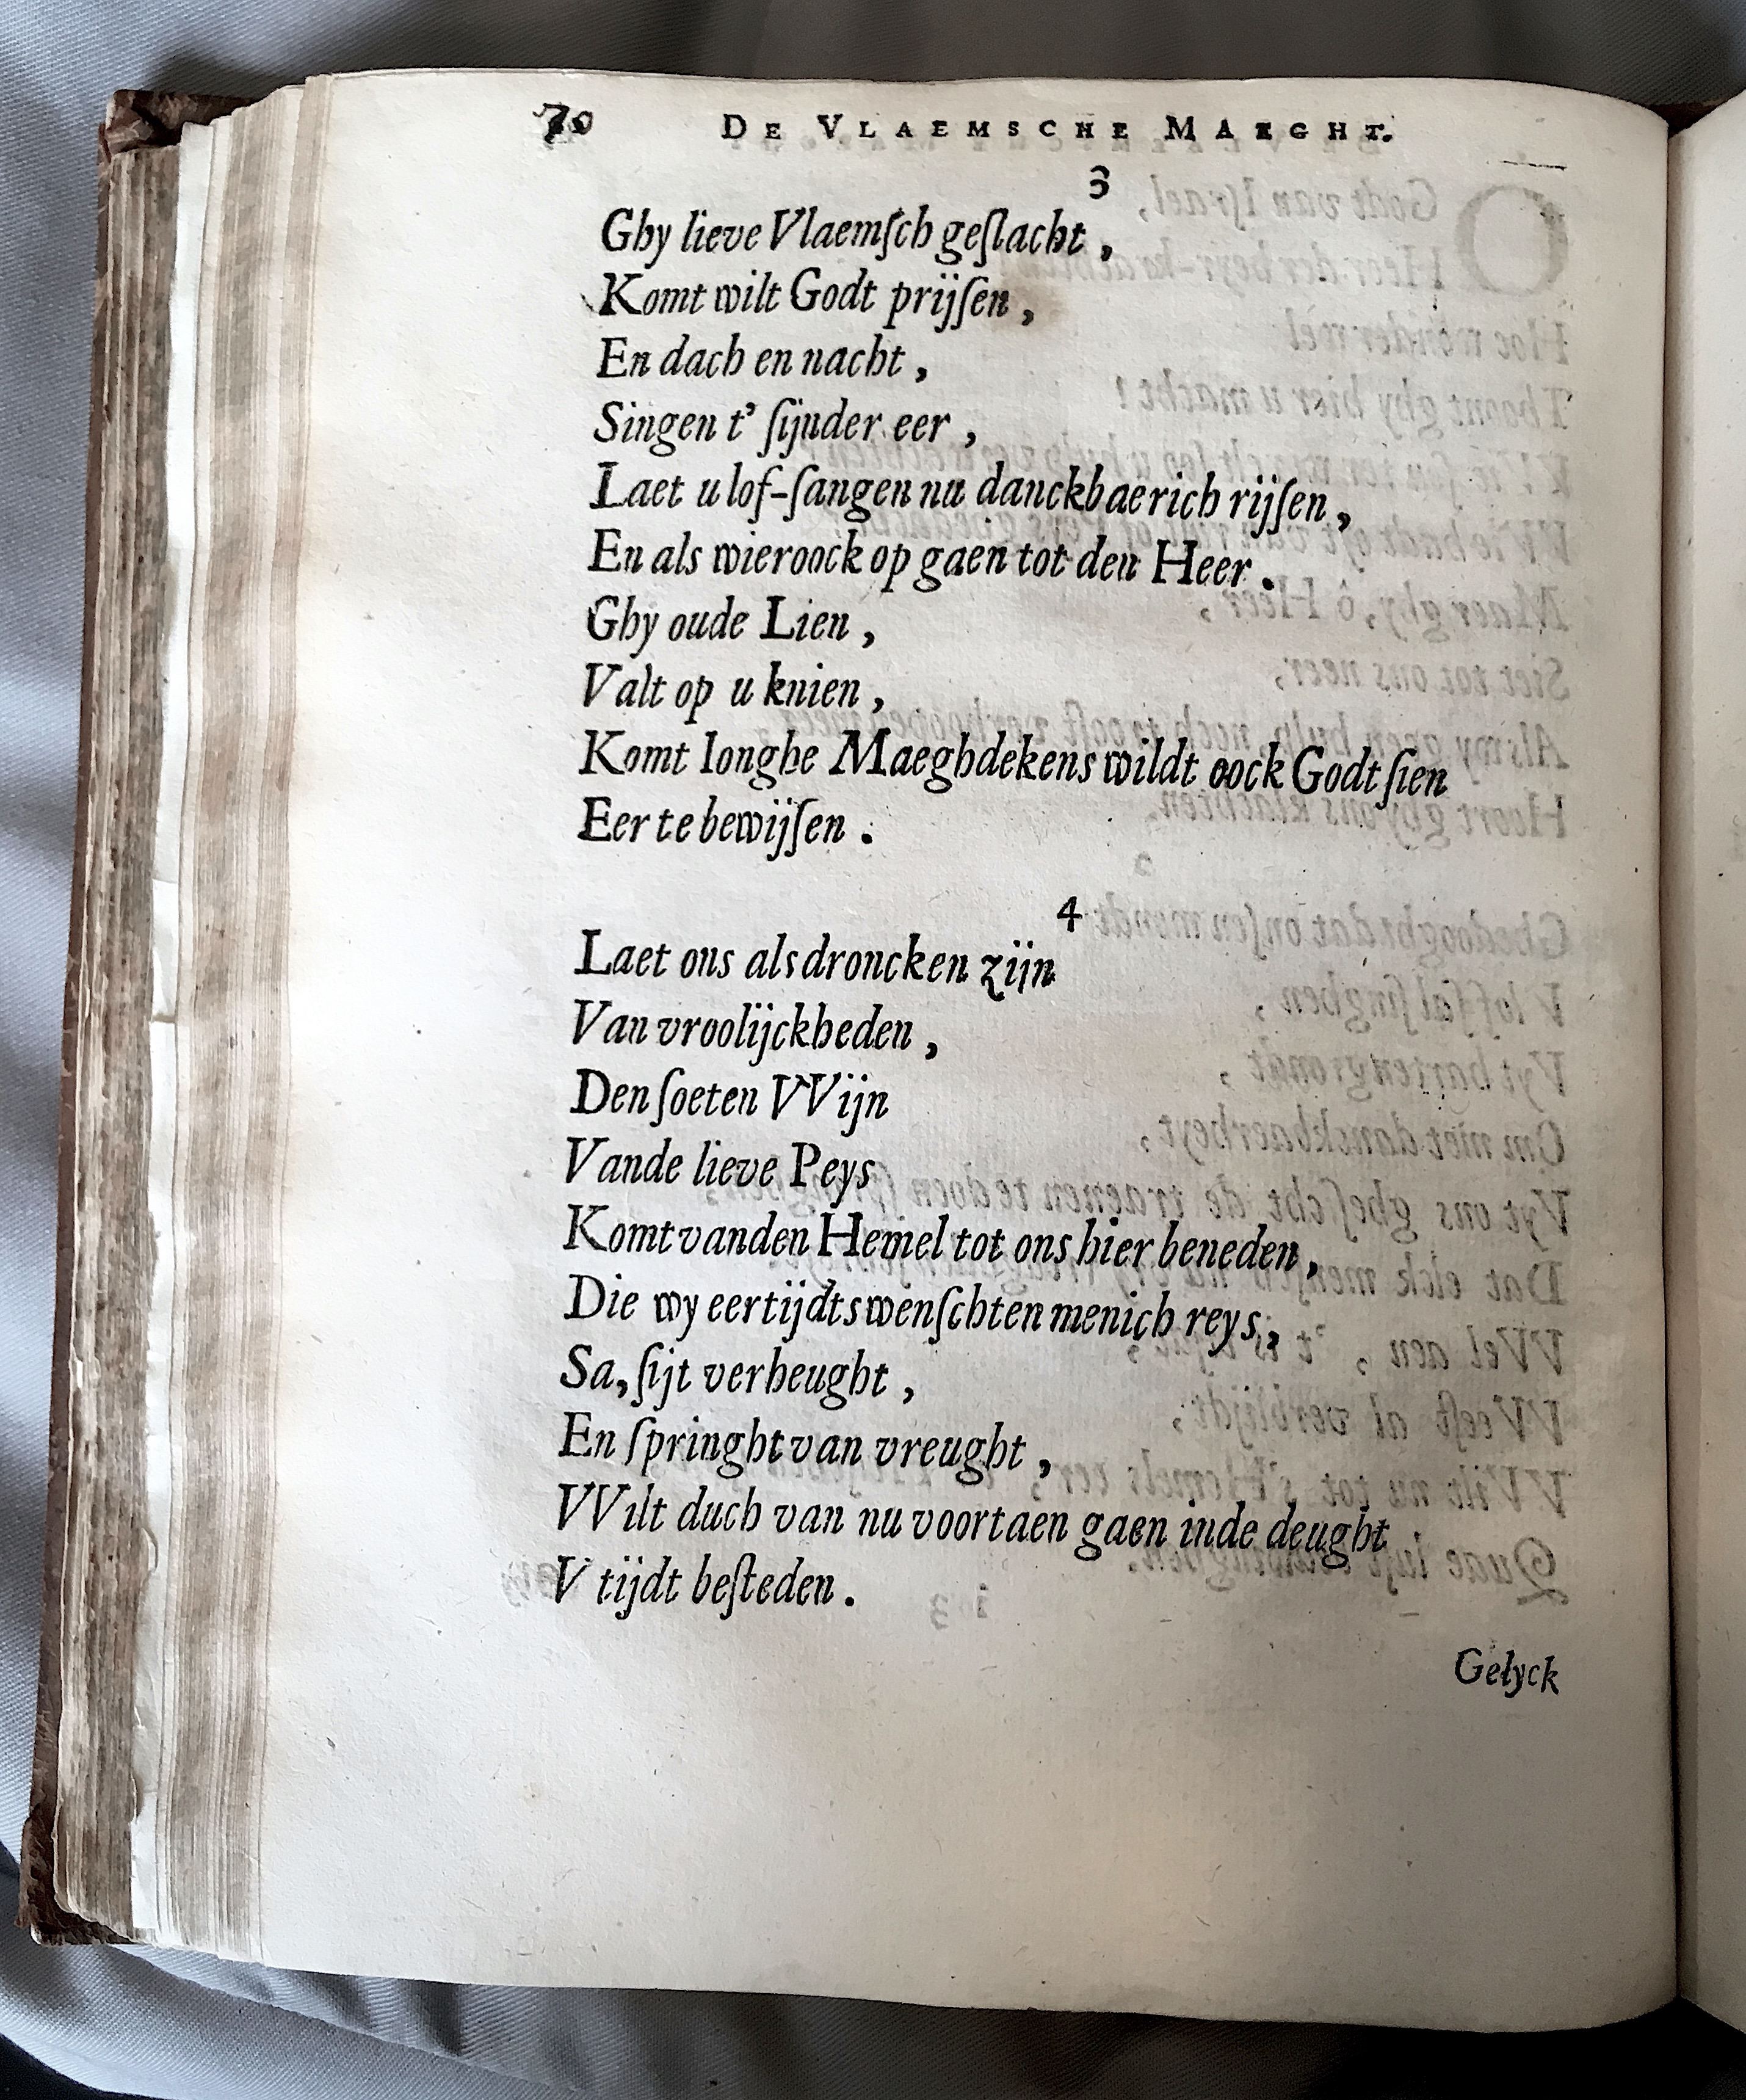 70 DE VLAEMSCHE MAEGHT.
3
Ghy lieve Vlaemſch geſlacht ,
Komt wilt Godt prijſen ,
En dach en nacht ,
Singen t' ſijnder eer ,
Laet u lof-ſangen nu danckbaerich rijſen ,
En als wieroock op gaen tot den Heer .
Ghy oude Lien ,
Valt op u knien ,
Komt Ionghe Maeghdekens wildt oock Godt ſien
Eer te bewijſen .
4
Laet ons als droncken zijn
Van vroolijckheden ,
Den ſoeten VVijn
Vande lieve Peys
Komt vanden Hemel tot ons hier beneden ,
Die wy eertijdts wenſchten menich reys ,
Sa, ſijt verheught ,
En ſpringht van vreught ,
VVilt duch van nu voortaen gaen inde deught
V tijdt beſteden .
Gelyck